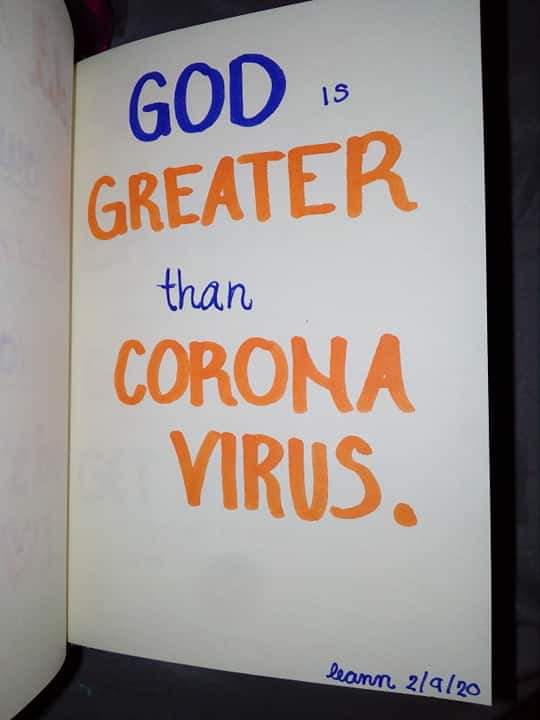 GOD is
GREATER
than
CORONA
VIRUS.
leann 2/9/20